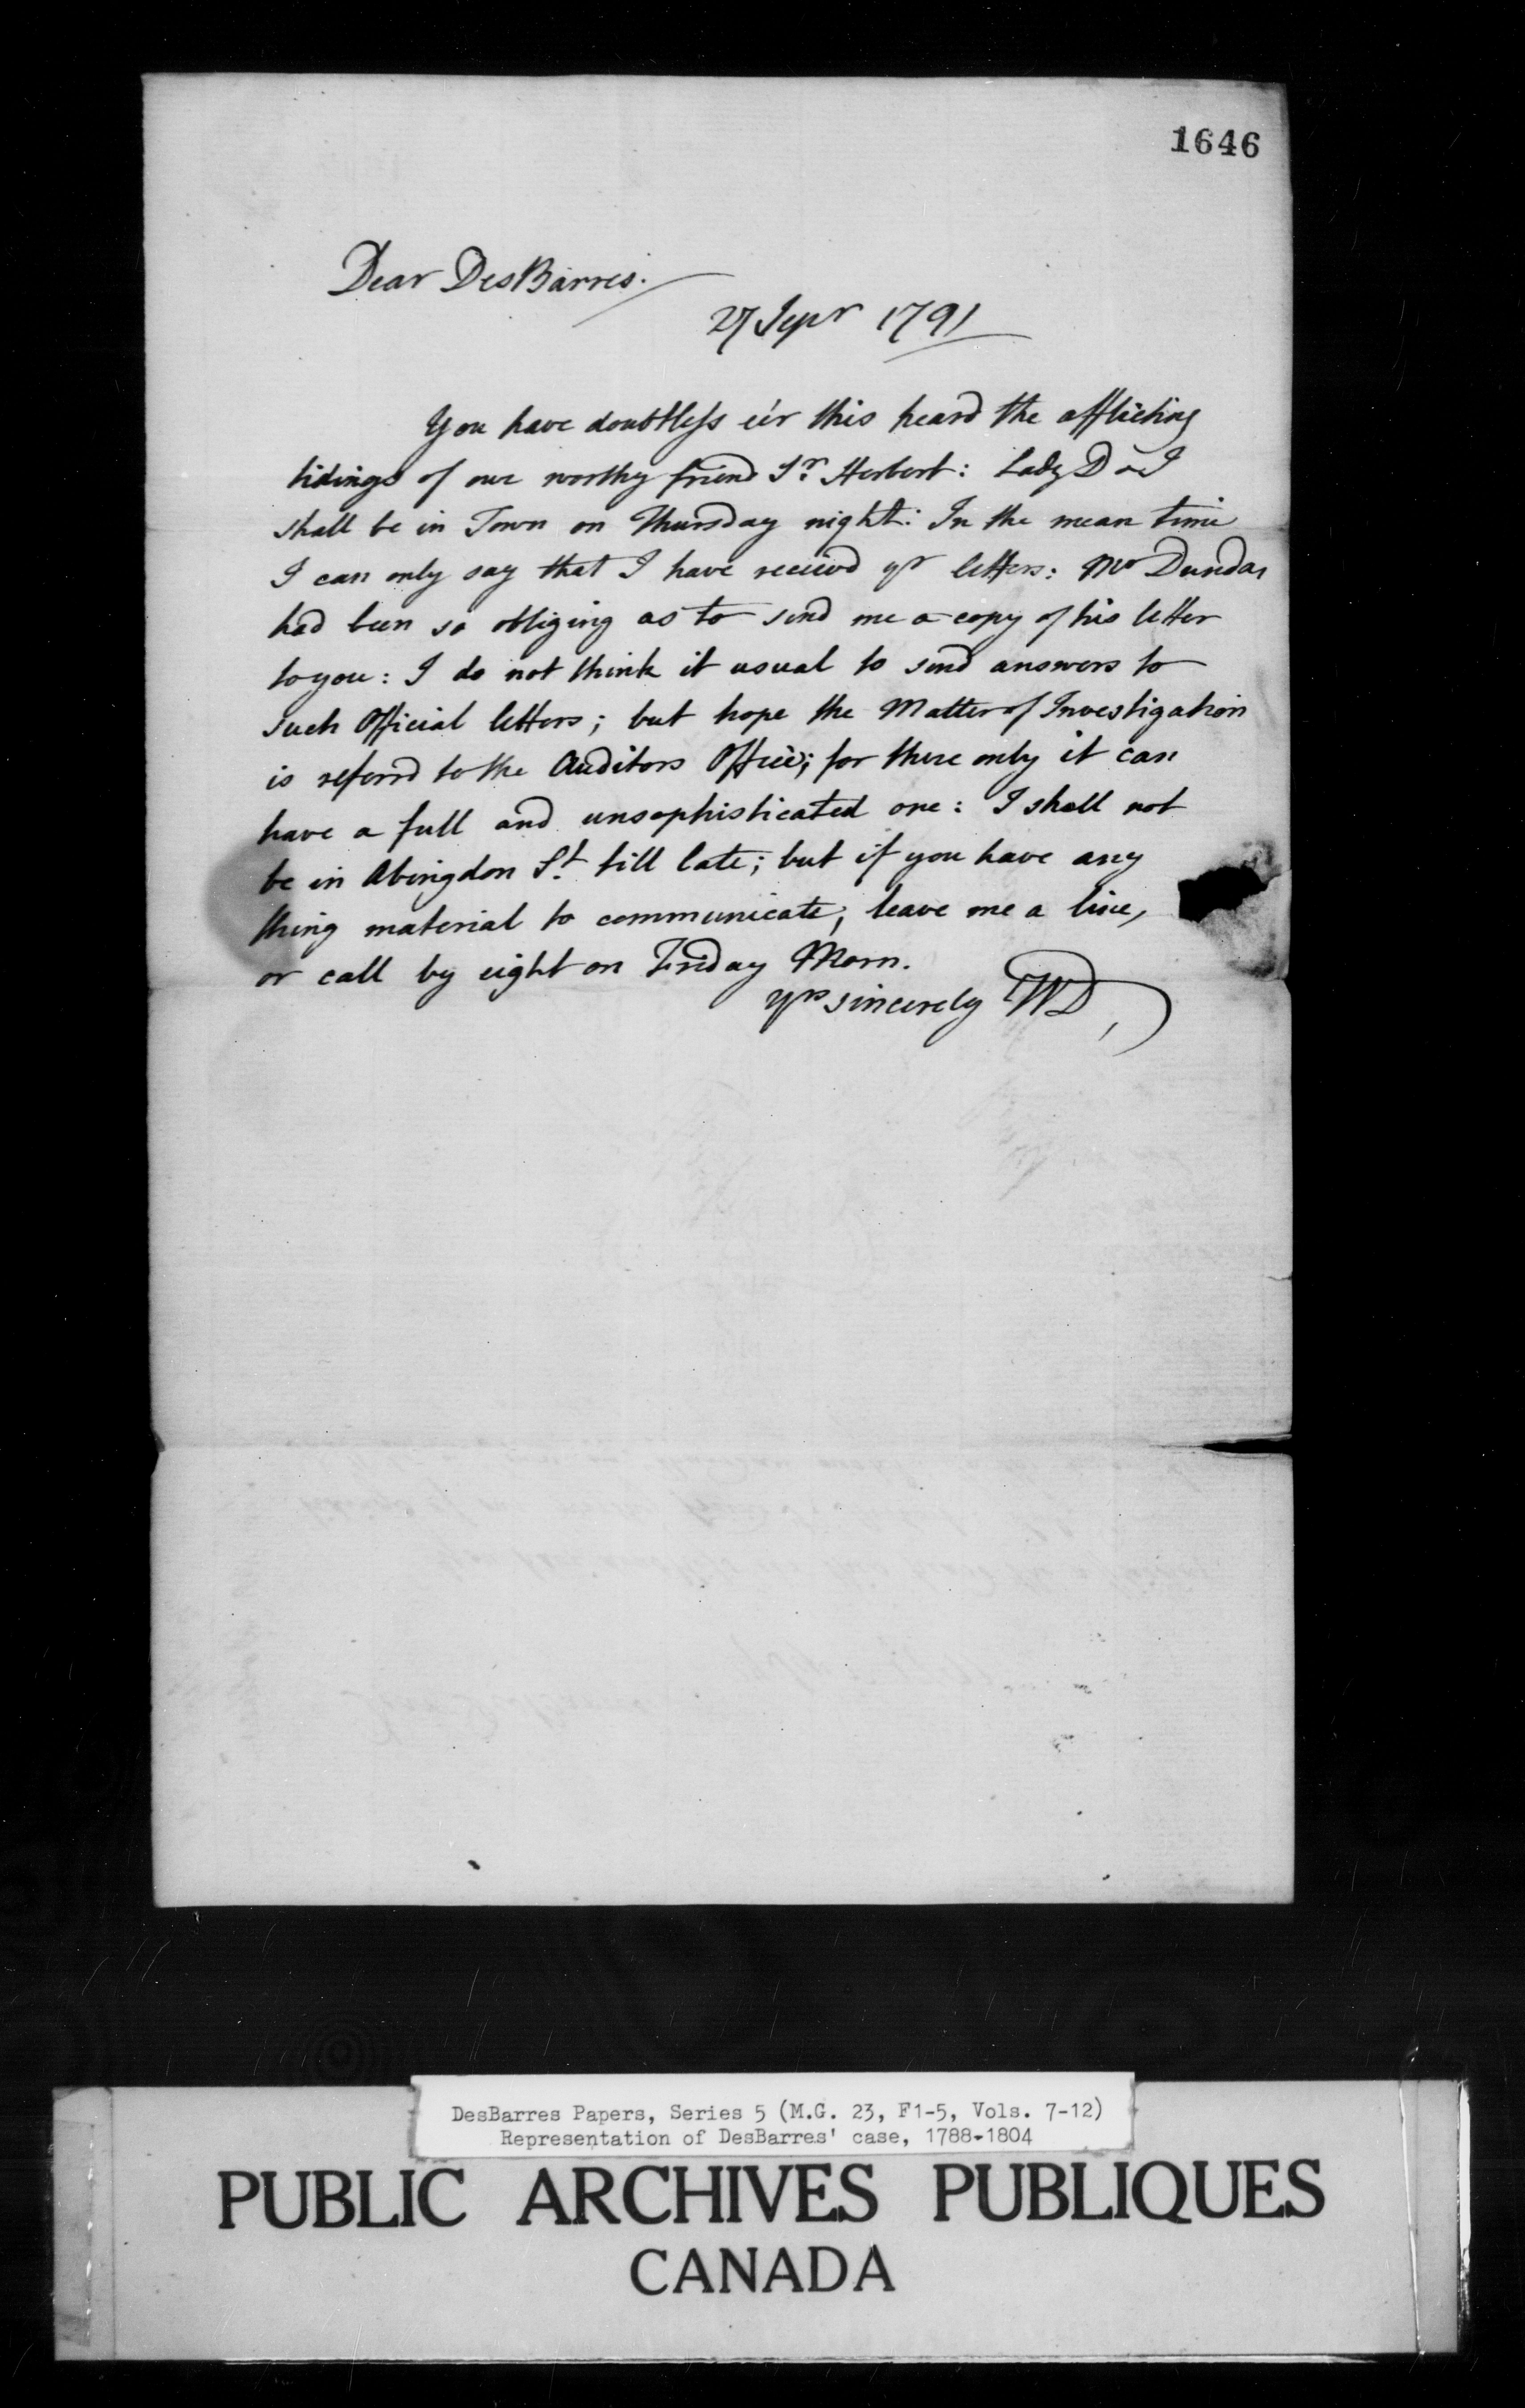 1646
Dear DesBarres.
27 Sepr 1791
You have doubtless e'er this heard the afflicting
tidings of our worthy friend Sr. Herbert: Lady D & I
shall be in Town on Thursday night: In the mean time
I can only say that I have receivd yr letters: Mr Dundas
had been so obliging as to send me a copy of his letter
to you: I do not think it usual to send answers to
such Official letters; but hope the Matter of Investigation
is referrd to the Auditors Office; for there only it can
have a full and unsophisticated one: I shall not
be in Abingdon St. till late; but if you have any
thing material to communicate, leave me a line,
or call by eight on Friday Morn.
yrs sincerely WD
DesBarres Papers, Series 5 (M.G. 23, F1-5, Vols. 7-12)
Representation of DesBarres' case, 1788-1804
PUBLIC ARCHIVES PUBLIQUES
CANADA